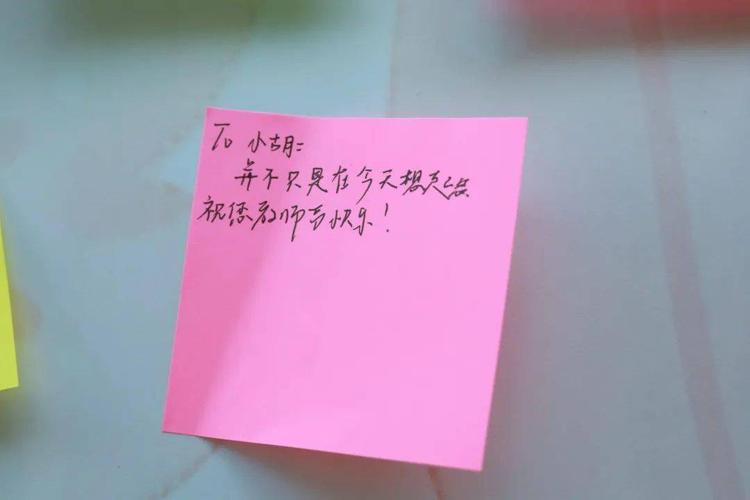 To 小胡:
并不只是在今天想起您
祝您教师节快乐!